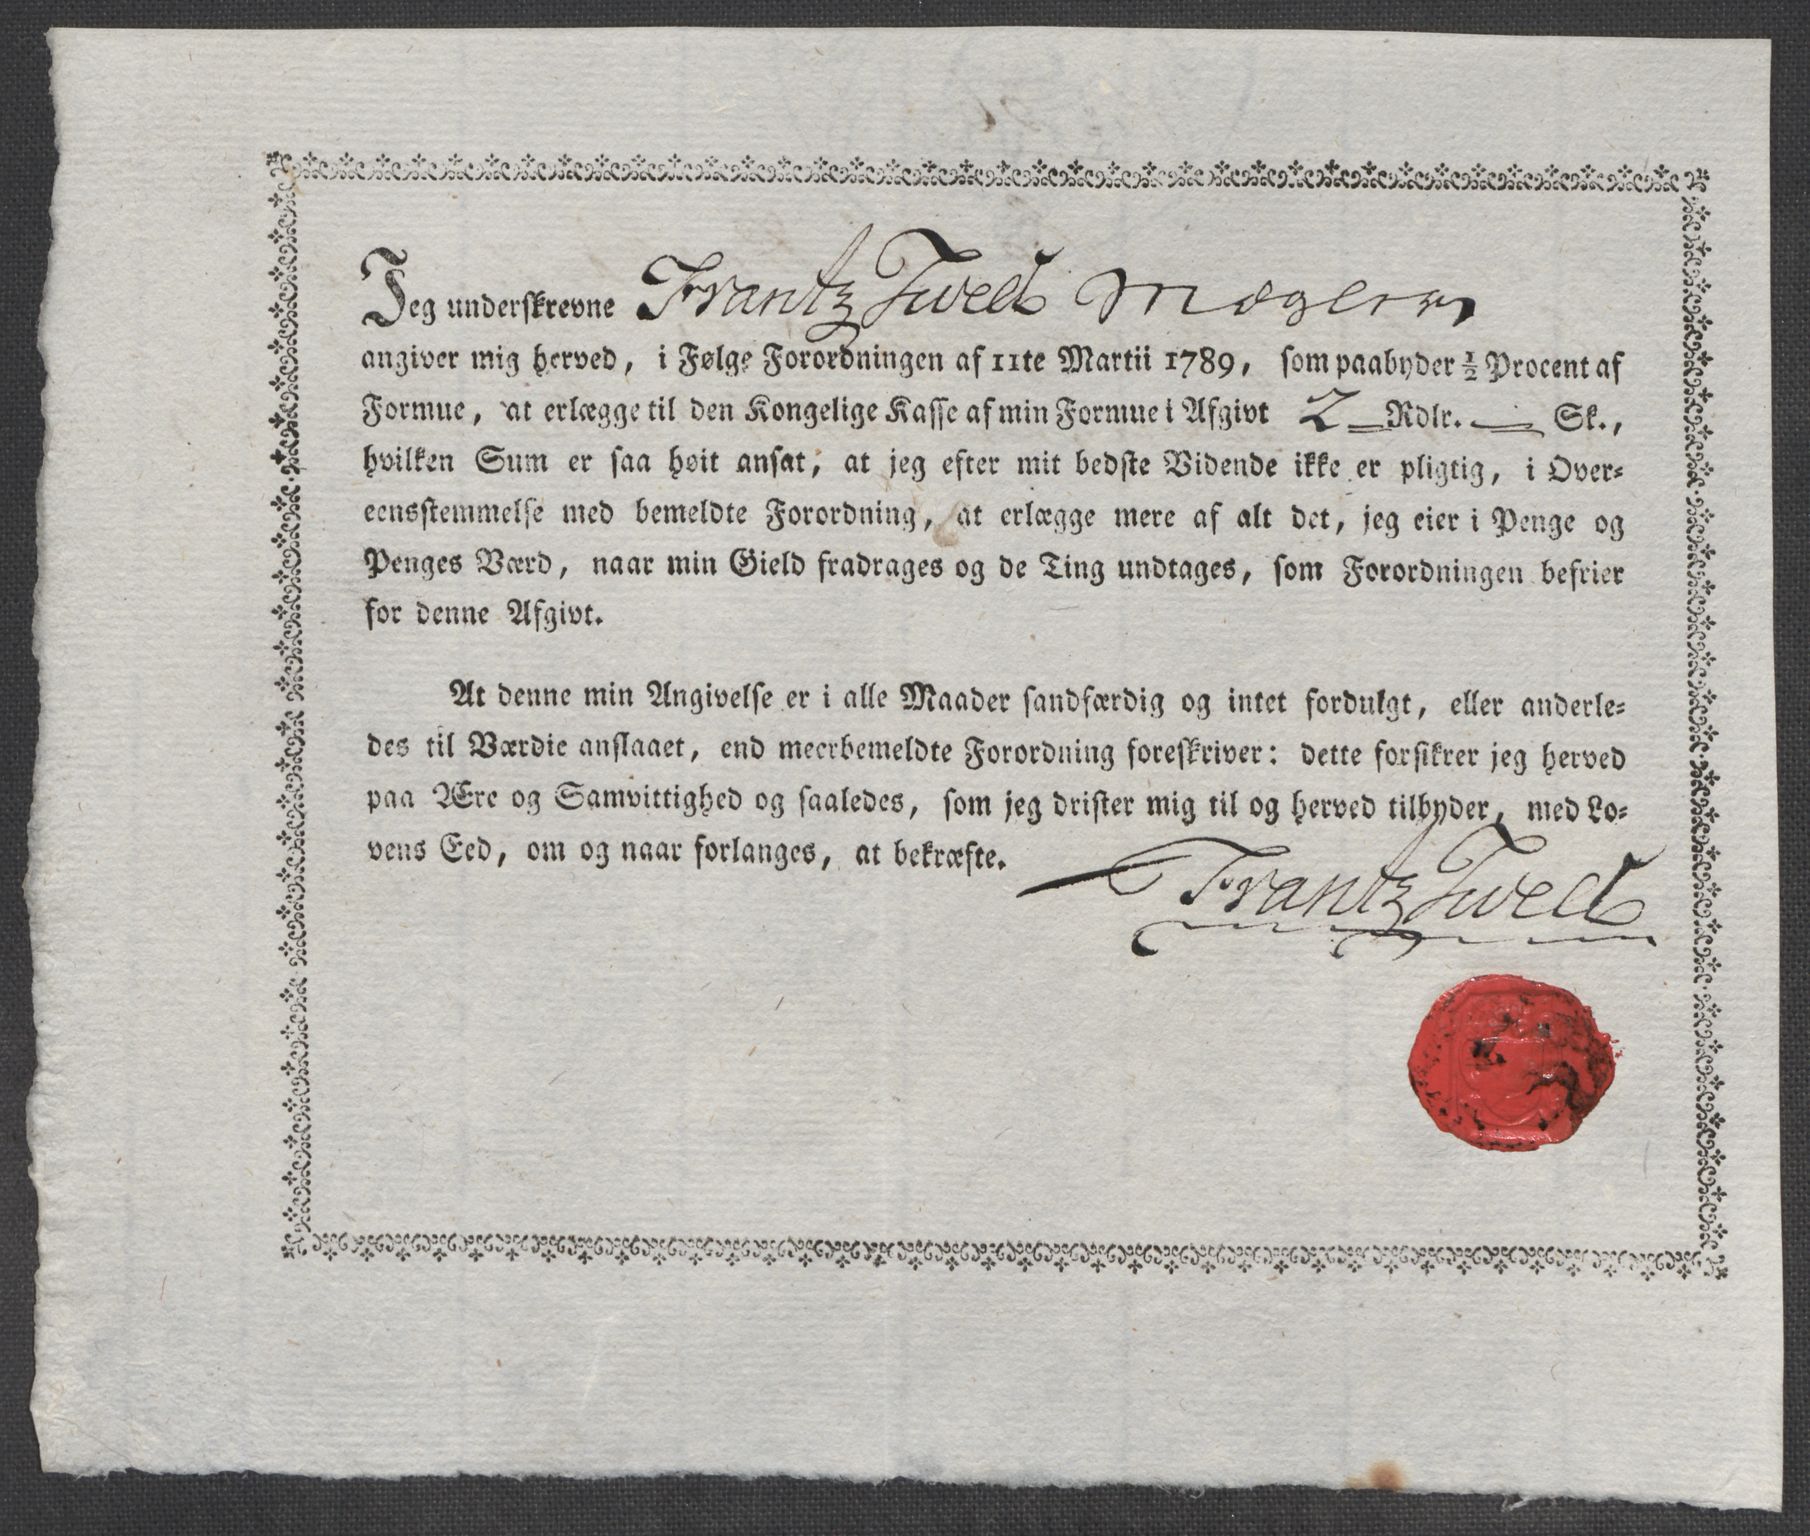 Jeg underskrevne Frantz Tweed Mægler
angiver mig herved, i Følge Forordningen af 11te Martii 1789, som paabyder ½ Procent af
Formue, at erlægge til den Kongelige Kasse af min Formue i Afgivt 2 Rdlr. — Sk.,
hvilken Sum er saa høit ansat, at jeg efter mit bedste Vidende ikke er pligtig, i Over-
eensstemmelse med bemeldte Forordning, at erlægge mere af alt det, jeg eier i Penge og
Penges Værd, naar min Gield fradrages og de Ting undtages, som Forordningen befrier
for denne Afgivt.
At denne min Angivelse er i alle Maader sandfærdig og intet fordulgt, eller anderle-
des til Værdie anslaaet, end meerbemeldte Forordning foreskriver: dette forsikrer jeg herved
paa Ære og Samvittighed og saaledes, som jeg drister mig til og herved tilbyder, med Lo-
vens Eed, om og naar forlanges, at bekræfte.
Frantz Tweed